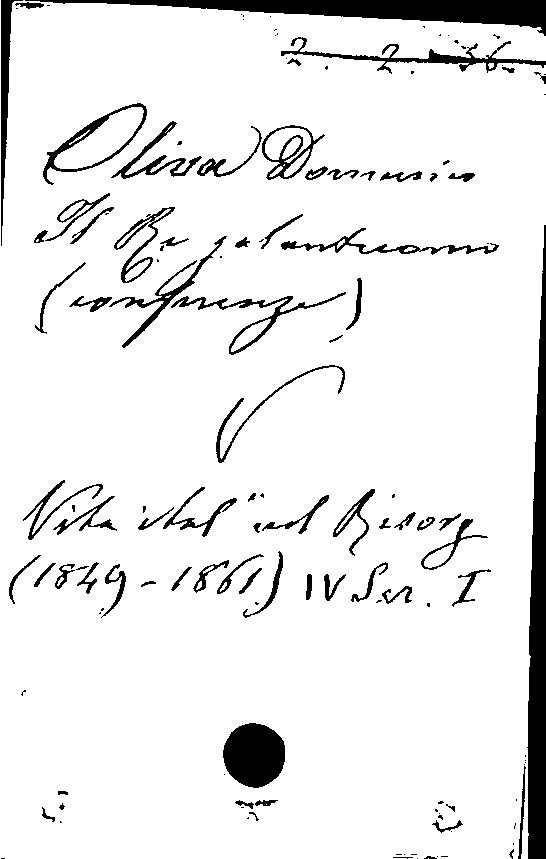 2. 2. 36.
Oliva Domenico
Il Re galantuomo
(conferenze)
V
Vita ital" nel Risorg
(1849-1861) IV Ser. I